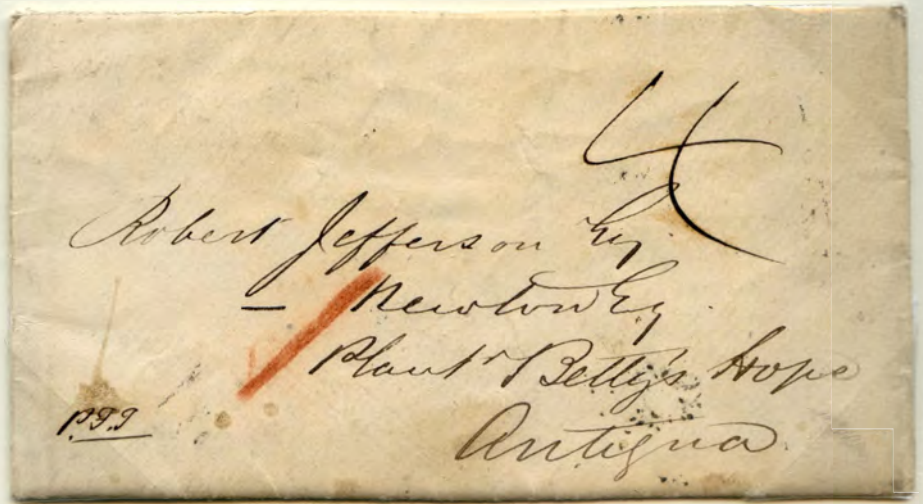 4
Robert Jefferson Esq
— Newton Esq.
Plantn Betty's Hope
Antigua